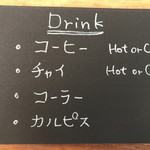 Drink
・コーヒー Hot or
・チャイ Hot or
・コーラー
・カルピス